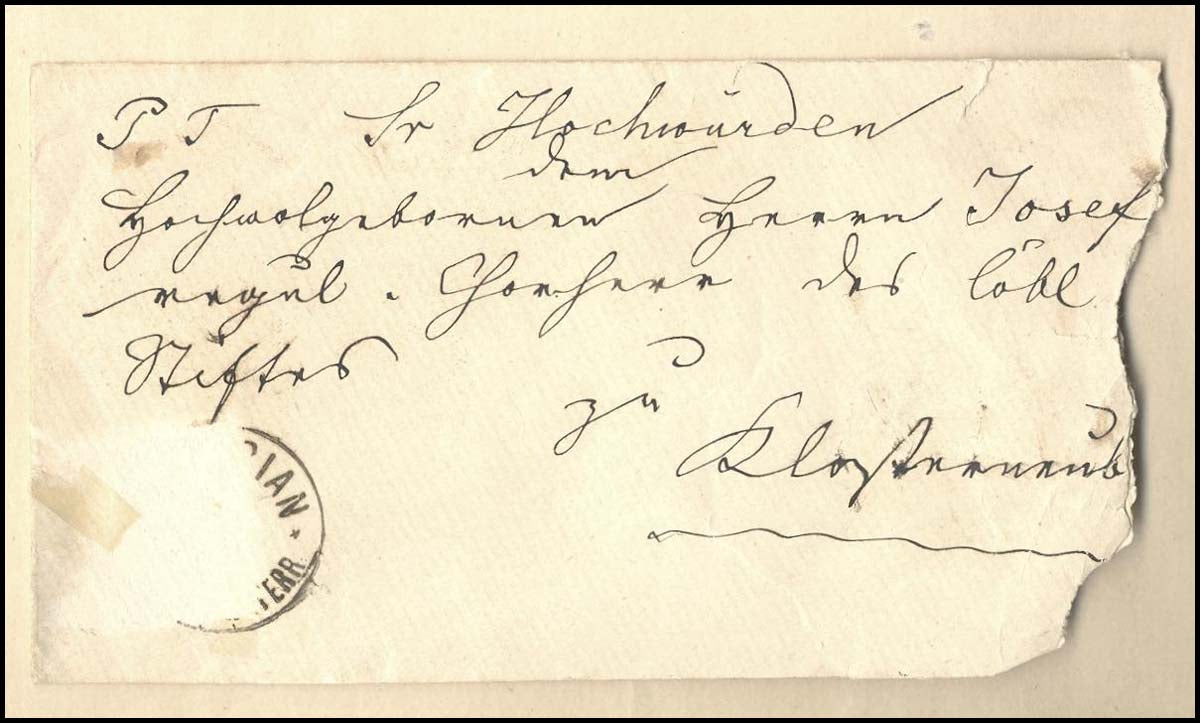 P T Sr Hochwürden
dem
Hochwolgebornen Herrn Josef
regul. Chorherr des löbl
Stiftes
zu
Klosterneub
RIAN *
TERR